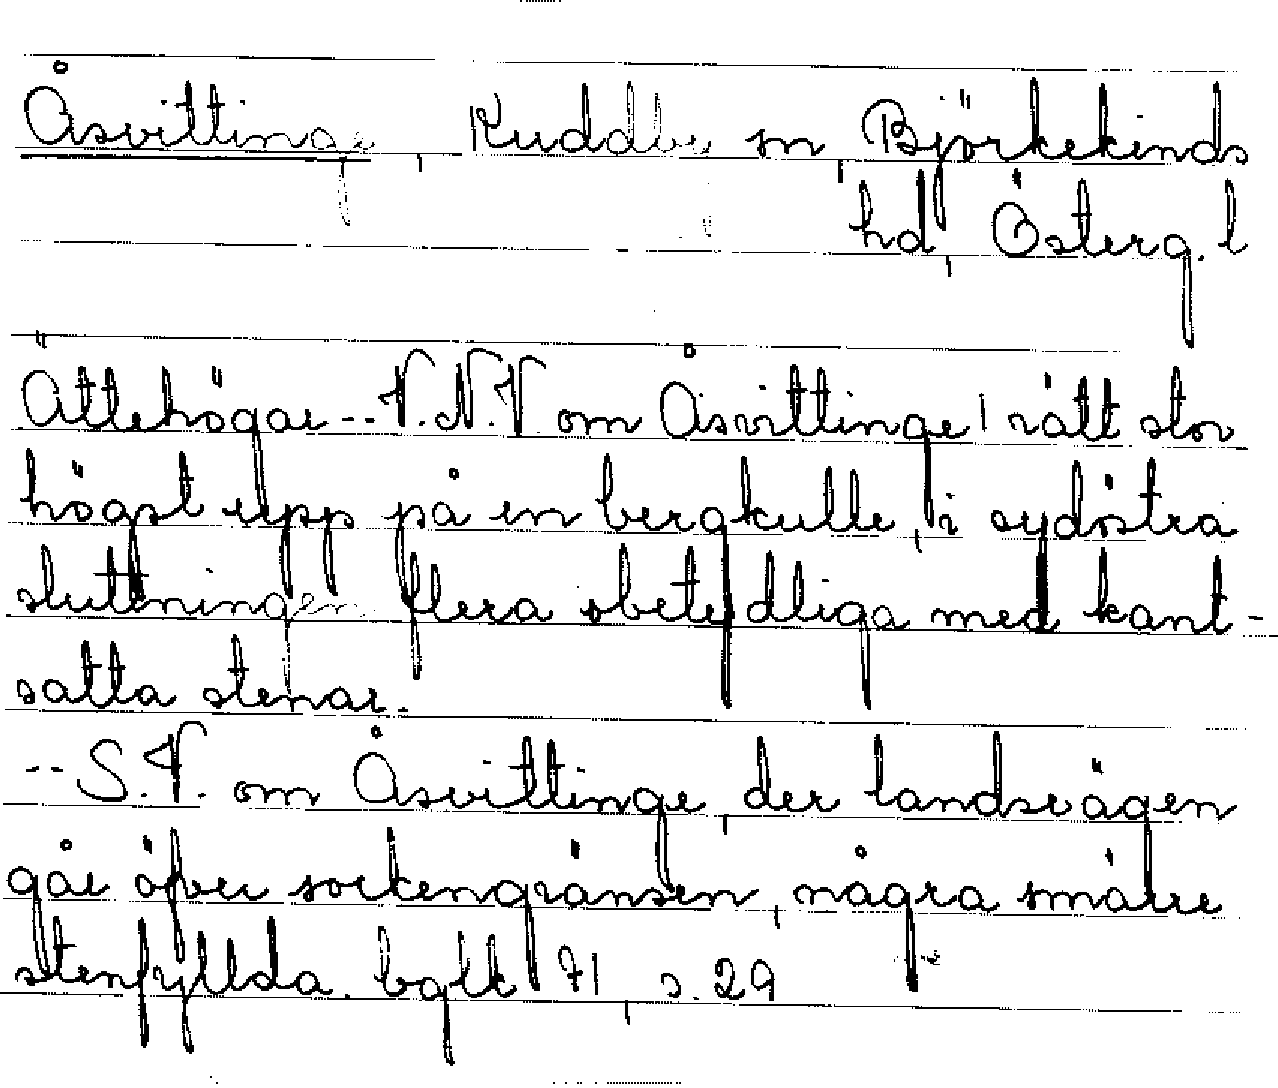 Åsvittinge, Kuddby sn, Björkekinds
hd, Österg. l
Ättehögar -- V.N.V. om Åsvittinge! rätt stor
högst upp på en bergkulle, i sydöstra
sluttningen flera obetydliga med kant-
satta stenar.
-- S.V. om Åsvittinge, der landsvägen
går öfver sockengränsen, några smärre
stenfyllda. bgtk 71, s. 29